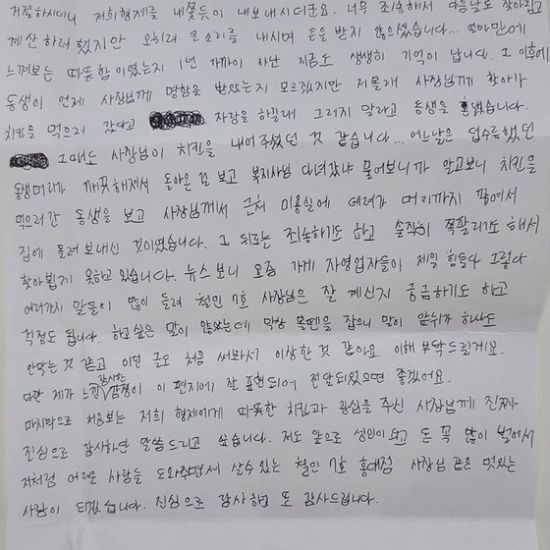 거절하시더니 저희형제를 내쫓듯이 내보내시더군요. 너무 죄송해서 다음날도 찾아뵙고
계산하려 했지만 오히려 큰 소리를 내시며 돈을 받지 않으셨습니다... 얼마만에
느껴보는 따뜻함이였는지 1년 가까이 지난 지금도 생생히 기억이 납니다. 그 이후에
동생이 언제 사장님께 명함을 받았는지 모르겠지만 저 몰래 사장님께 찾아가
치킨을 먹으러 갔다고 자랑을 하길래 그러지 말라고 동생을 혼냈습니다.
그때도 사장님이 치킨을 내어주셨던 것 같습니다... 어느날은 덥수룩했던
동생머리가 깨끗해져서 돌아온 걸 보고 복지사님 다녀갔냐 물어보니까 알고보니 치킨을
먹으러간 동생을 보고 사장님께서 근처 미용실에 데려가 머리까지 깎여서
집에 돌려 보내신 것이였습니다. 그 뒤로는 죄송하기도 하고 솔직히 쪽팔리기도 해서
찾아뵙지 못하고 있습니다. 뉴스보니 요즘 가게 자영업자들이 제일 힘들다 그렇다
여러가지 말들이 많이 들려 철인 7호 사장님은 잘 계신지 궁금하기도 하고
걱정도 됩니다. 하고싶은 말이 많았는데 막상 볼펜을 잡으니 말이 앞뒤가 하나도
안맞는 것 같고 이런 글도 처음 써봐서 이상한 것 같아요. 이해 부탁드릴게요.
다만 제가 느낀 감사한 감정이 이 편지에 잘 표현되어 전달되었으면 좋겠어요.
마지막으로 처음보는 저희 형제에게 따뜻한 치킨과 관심을 주신 사장님께 진짜
진심으로 감사하단 말씀드리고 싶습니다. 저도 앞으로 성인이 되고 돈 꼭 많이 벌어서
저처럼 어려운 사람들 도와주면서 살수있는 철인 7호 홍대점 사장님 같은 멋있는
사람이 되겠습니다. 진심으로 감사하고 또 감사드립니다.